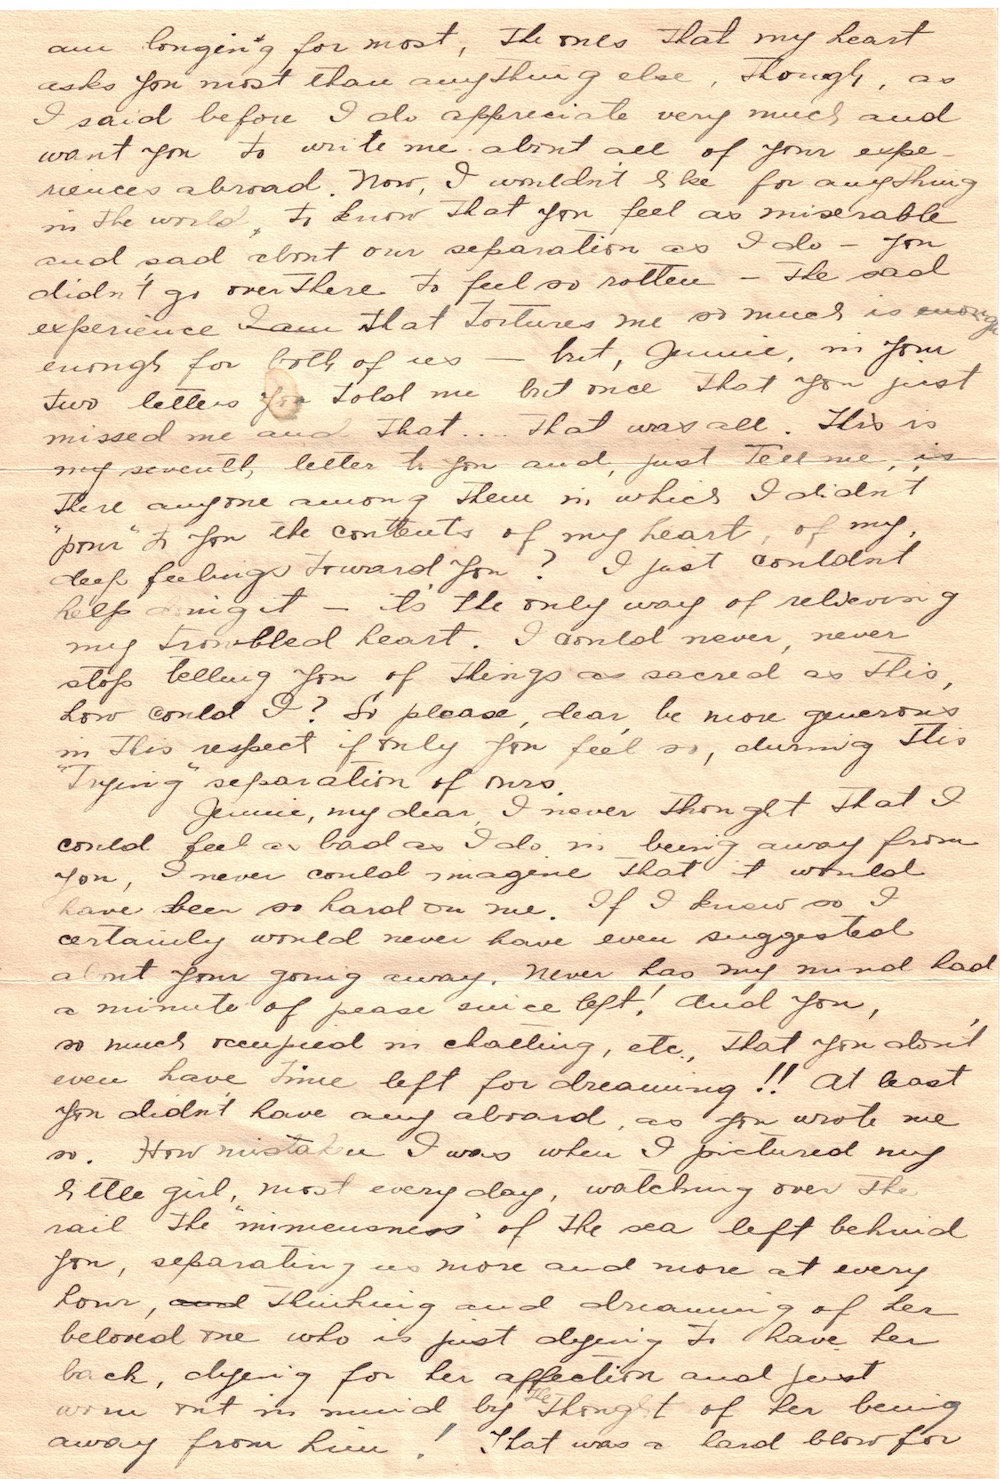 am longing for most, the ones that my heart
asks you most than anything else, though, as
I said before I do appreciate very much and
want you to write me about all of your expe-
riences abroad. Now, I wouldn't like for anything
in the world, to know that you feel as miserable
and sad about our separation as I do – you
didn't go over there to feel so rotten – the sad
experience I am that tortures me so much is enough
enough for both of us — but, Jennie, in your
two letters you told me but once that you just
missed me and that.... that was all. This is
my seventh letter to you and, just tell me, is
there anyone among them in which I didn't
"pour" to you the contents of my heart, of my,
deep feelings toward you? I just couldn't
help doing it – it's the only way of relieving
my troubled heart. I could never, never
stop telling you of things as sacred as this,
how could I? So please, dear, be more generous
in this respect if only you feel so, during this
"Trying" separation of ours.
Jennie, my dear, I never thought that I
could feel as bad as I do in being away from
you, I never could imagine that it would
have been so hard on me. If I knew so I
certainly would never have even suggested
about your going away. Never has my mind had
a minute of pease since left! And you,
so much occupied in chatting, etc., that you don't
even have time left for dreaming!! At least
you didn't have any aboard, as you wrote me
so. How mistaken I was when I pictured my
little girl, most every day, watching over the
rail the "mimeusness" of the sea left behind
you, separating us more and more at every
hour, and thinking and dreaming of her
beloved one who is just dying to have her
back, dying for her affection and just
worn out in mind by the thought of her being
away from him! That was a hard blow for